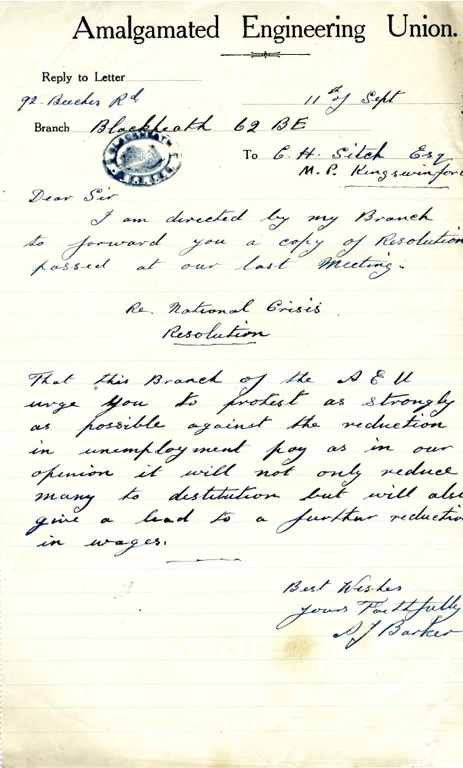 Amalgamated Engineering Union.
Reply to Letter
92 Beeches Rd
11th of Sept
Branch Blackheath 62 BE
BLACKHEATH
To C. H. Sitch Esq
M.P. Kingswinford
Dear Sir
I am directed by my Branch
to forward you a copy of Resolution
passed at our last Meeting.
Re. National Crisis
Resolution
That this Branch of the A E U
urge you to protest as strongly
as possible against the reduction
in unemployment pay as in our
opinion it will not only reduce
many to destitution but will also
give a lead to a further reduction
in wages.
Best Wishes
Yours Faithfully
A J Barker